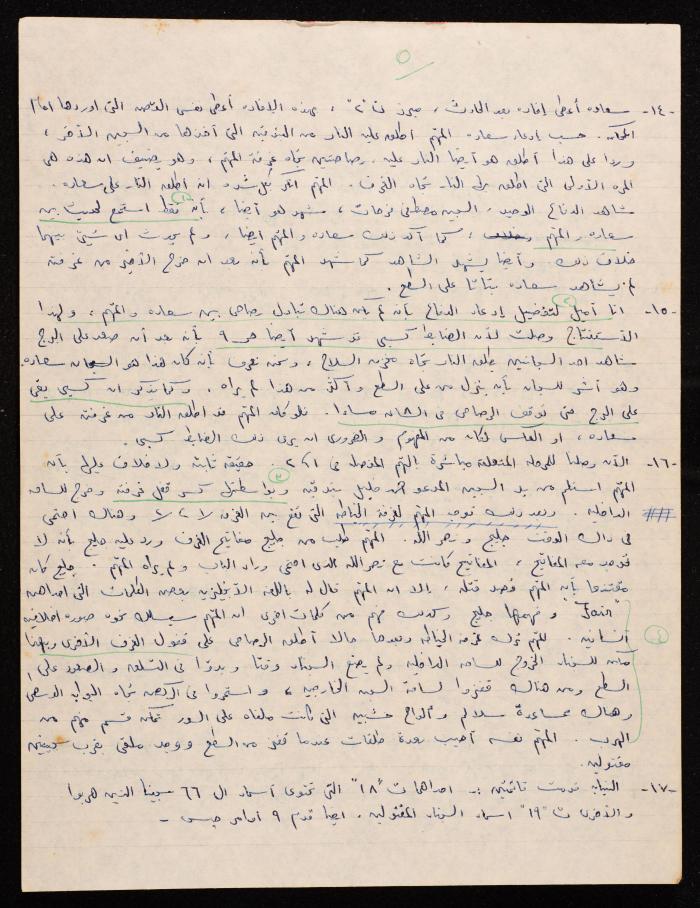 ٥
-١٤- سعاده أعطى إفاده بعد الحادث، مبرز ت "٢"، بهذه الإفاده أعطى نفس القصه التي اوردها امام
المحكمه. حسب إدعاء سعاده المتهم أطلق عليه النار من البندقيه التي أخذها من السجين الآخر،
وردا على هذا أطلق هو أيضا النار عليه رصاصتين تجاه غرفة المتهم، وهو يضيف ان هذه هي
المره الأولى التي اطلق بها النار تجاه الغرف. المتهم انكر بكل شده انه أطلق النار على سعاده.
شاهد الدفاع الوحيد، السجين مصطفى فرحات، شهد هو أيضا، بأنه فقط استمع لحديث بين
(١)
سعاده والمتهم، كما أكد ذلك سعاده والمتهم أيضا، ولم يحدث اي شيئ بينهما
خلاف ذلك. وأيضا يشهد الشاهد كما شهد المتهم بأنه بعد ان خرج الأخير من غرفته
لم يشاهد سعاده بتاتا على السطح.
(٢)
-١٥- انا أميل لتفضيل إدعاء الدفاع بأنه لم يكن هناك تبادل رصاص بين سعاده والمتهم، ولهذا
الاستنتاج وصلت لأن الضابط كسي قد شهد أيضا ص ٩ بأنه بعد أن صعد على البرج
شاهد احد السجانين يطلق النار تجاه مخزن السلاح، ونحن نعرف بأنه كان هذا هو السجان سعاده
وهو أشر للسجان بأن ينزل من على السطح وأكثر من هذا لم يراه. وكما نذكر ان كسي بقي
على البرج حتى توقف الرصاص في ال ٨ مساءا. فلو كان المتهم قد اطلق النار من غرفته على
سعاده، او العكس لكان من المفهوم والضروري ان يرى ذلك الضابط كسي.
-١٦- الآن وصلنا للمرحله المتعلقه مباشرة بالتهم المفصله في ٢،١. حقيقة ثابته ولا خلاف عليها بأنه
(٣)
المتهم استلم من يد السجين المدعو حمد خليل بندقيه وبواسطتها كسر قفل غرفته وخرج للساحه
الداخليه. وبعد ذلك توجه المتهم لغرفة الخياطه التي تقع بين الغرف ٧/٢، ٢/٢ وهناك اختبى
في ذلك الوقت جليج ونصر الله. المتهم طلب من جليج مفاتيح الغرف ورد عليه جليج بأنه لا
توجد معه المفاتيح، المفاتيح كانت مع نصر الله الذي اختبى وراء الباب ولم يراه المتهم. جليج كان
مقتنعا بأن المتهم قصد قتله، إلا ان المتهم قال له باللغه الانجليزيه بعض الكلمات التي احداهن
"Fair" وفهمها جليج وكذلك فهم من كلمات اخرى ان المتهم يسلك نحوه صوره اخلاقيه
(٤)
انسانيه. المتهم ترك غرفة الخياطه وبعدها حالا أطلق الرصاص على قفول الغرف الأخرى وبهذا
مكن للسجناء الخروج للساحه الداخليه ولم يضع السجناء وقتا وبدؤا في التسلق والصعود على
السطح ومن هناك قفزوا لساحة السجن الخارجيه، واستمروا في الركض تجاه البوابه الوسطى
وهناك بمساعدة سلالم وألواح خشبيه التي كانت ملقاه على السور تمكن قسم منهم من
الهرب. المتهم نفسه أصيب بعدة طلقات عندما قفز من السطح ووجد ملقى بقرب سجينين
مقتولين.
-١٧- النيابه قدمت قائمتين :- احداهما ت "١٨" التي تحتوي أسماء ال ٦٦ سجينا الذين هربوا
والأخرى ت "١٩" اسماء السجناء المقتولين. ايضا قدم ٩ أوامر حبس -